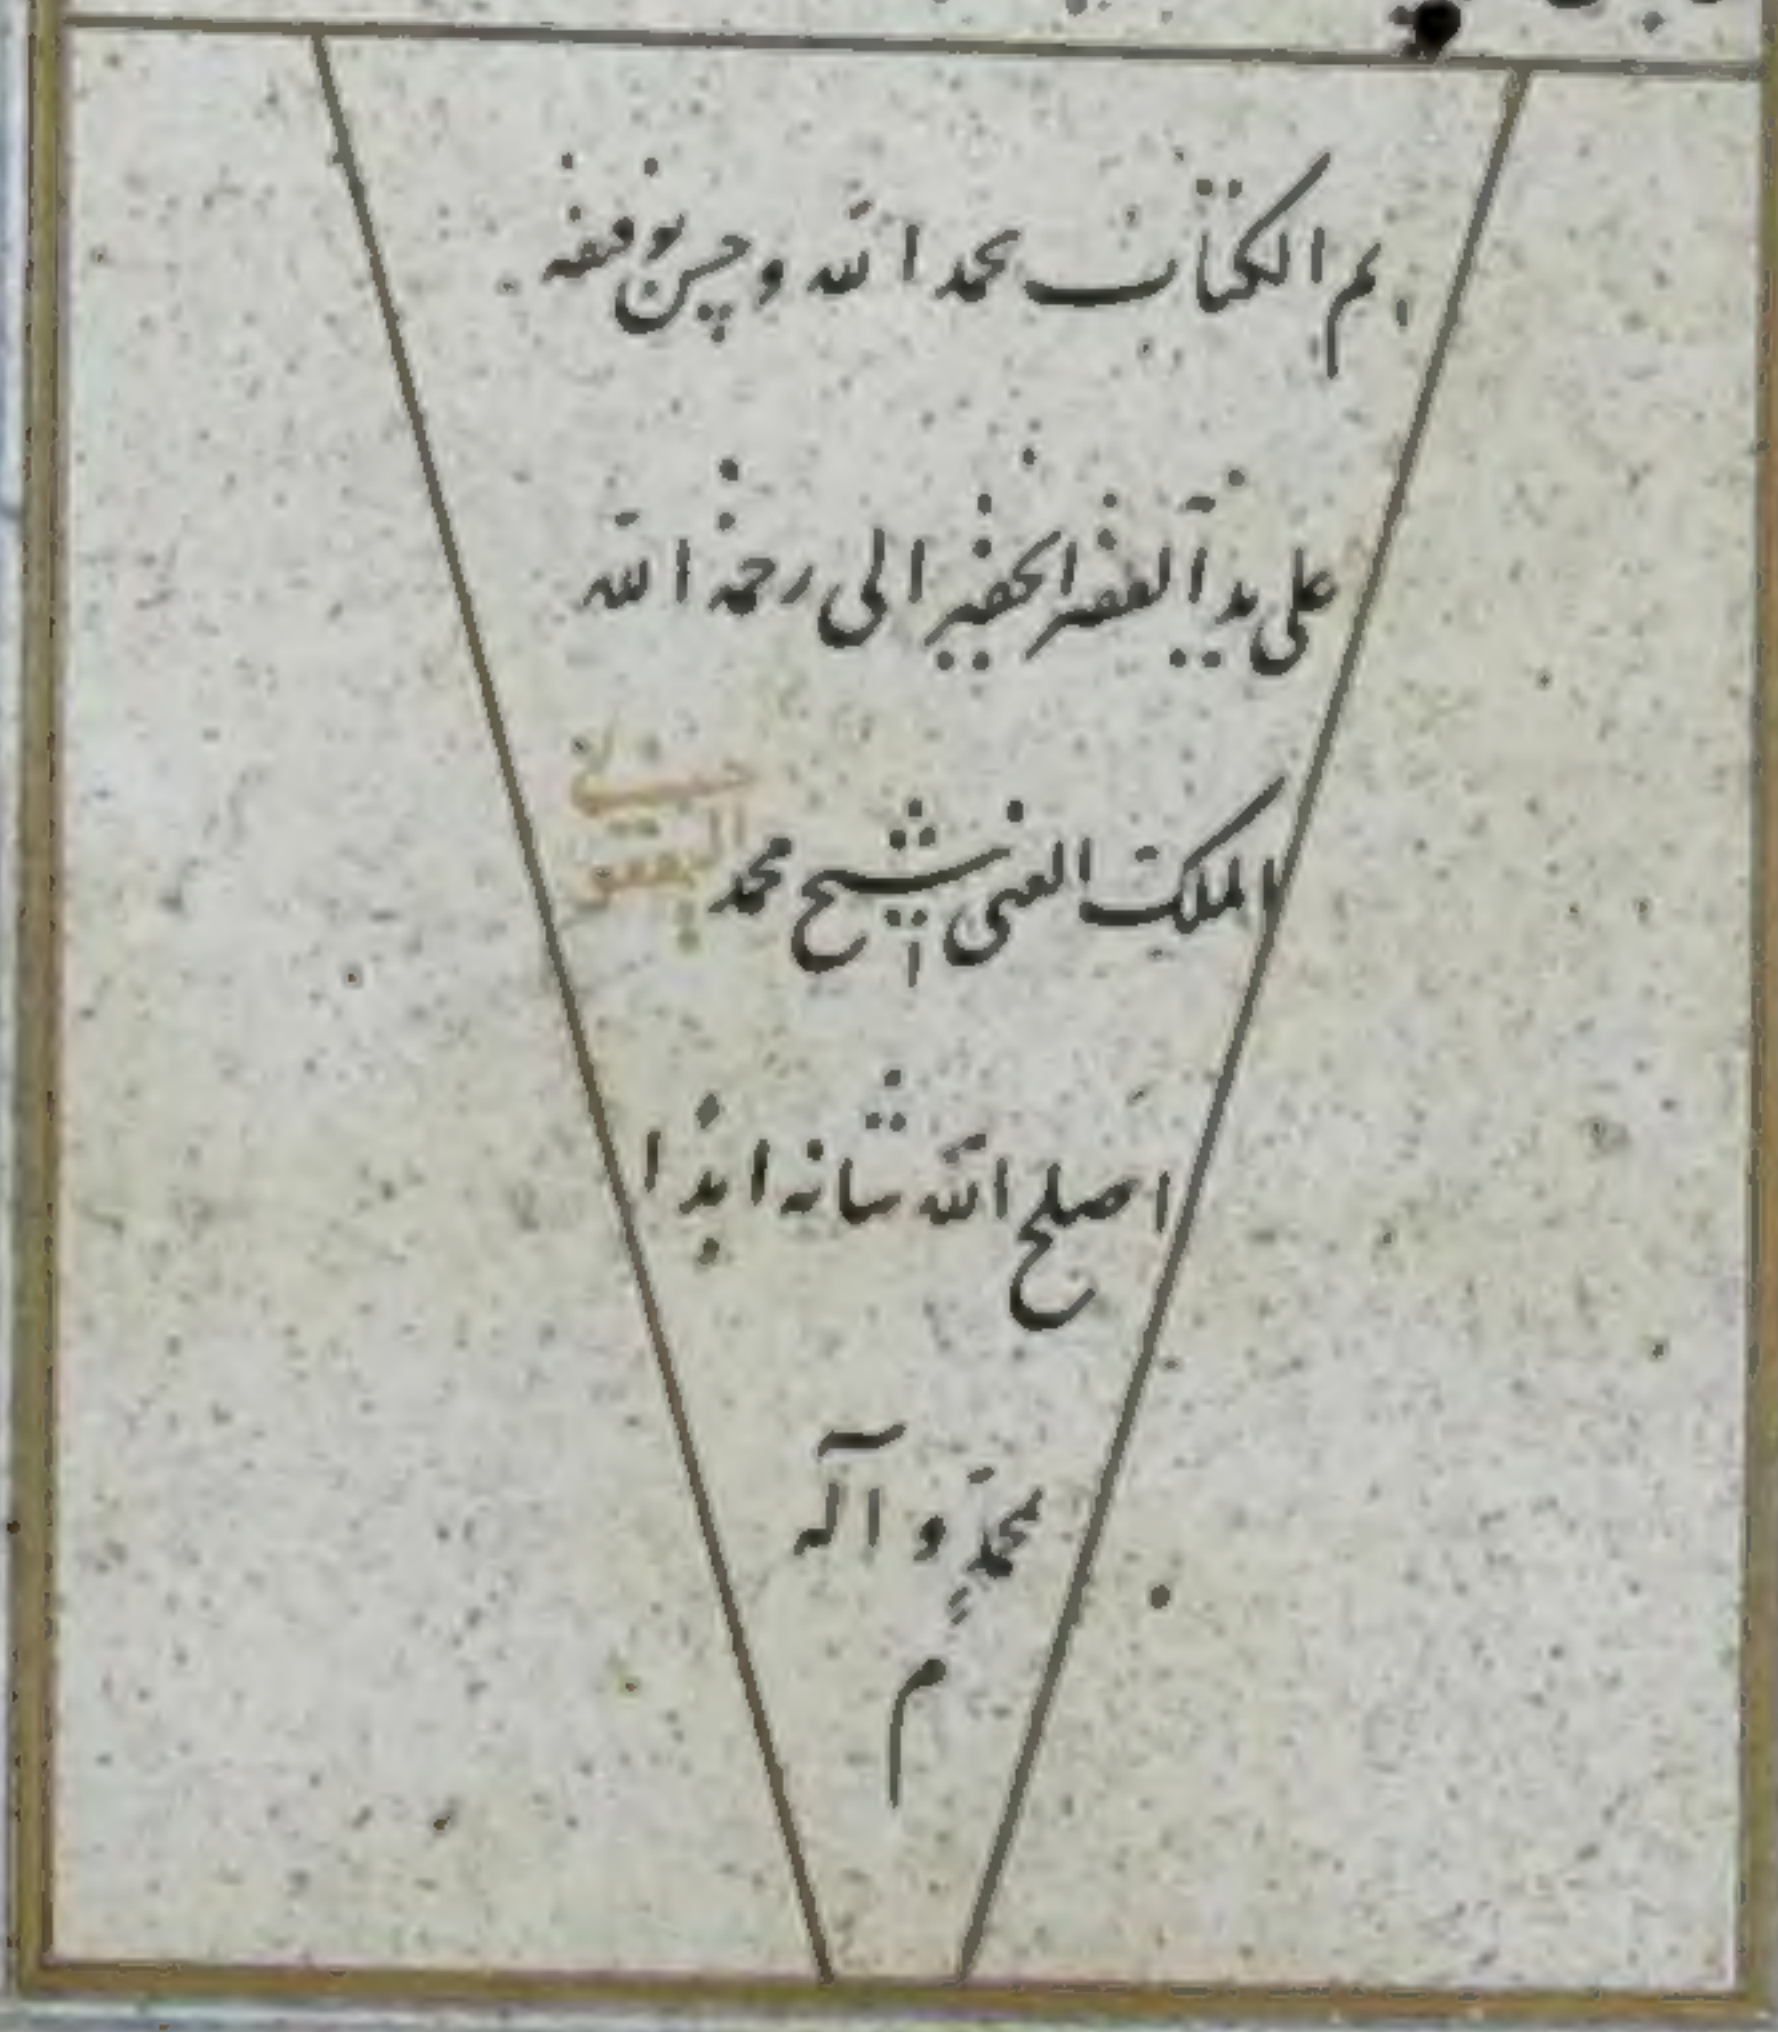 تم الكتاب بحمد الله وحسن توفيقه
على يد الفقير الحقير الى رحمة الله
الملك الغنى شيخ محمد
اصلح الله شانه ابدا
بمحمدٍ وآله
م